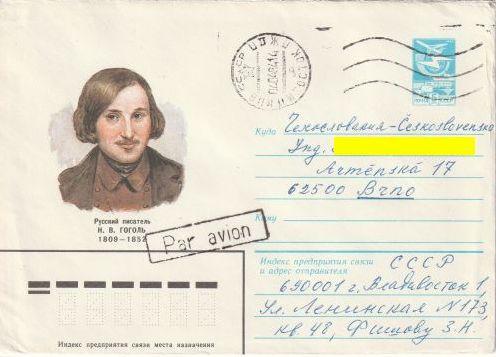 Русский писатель
Н. В. ГОГОЛЬ
1809—1852
Par avion
Куда Чехословакия-Československo
Ing.
Arménská 17
62500 Brno
Кому
Индекс предприятия связи
и адрес отправителя
СССР
690001 г. Владивосток 1,
ул. Ленинская N173,
кв. 48, Фишову З. Н.
Индекс предприятия связи места назначения